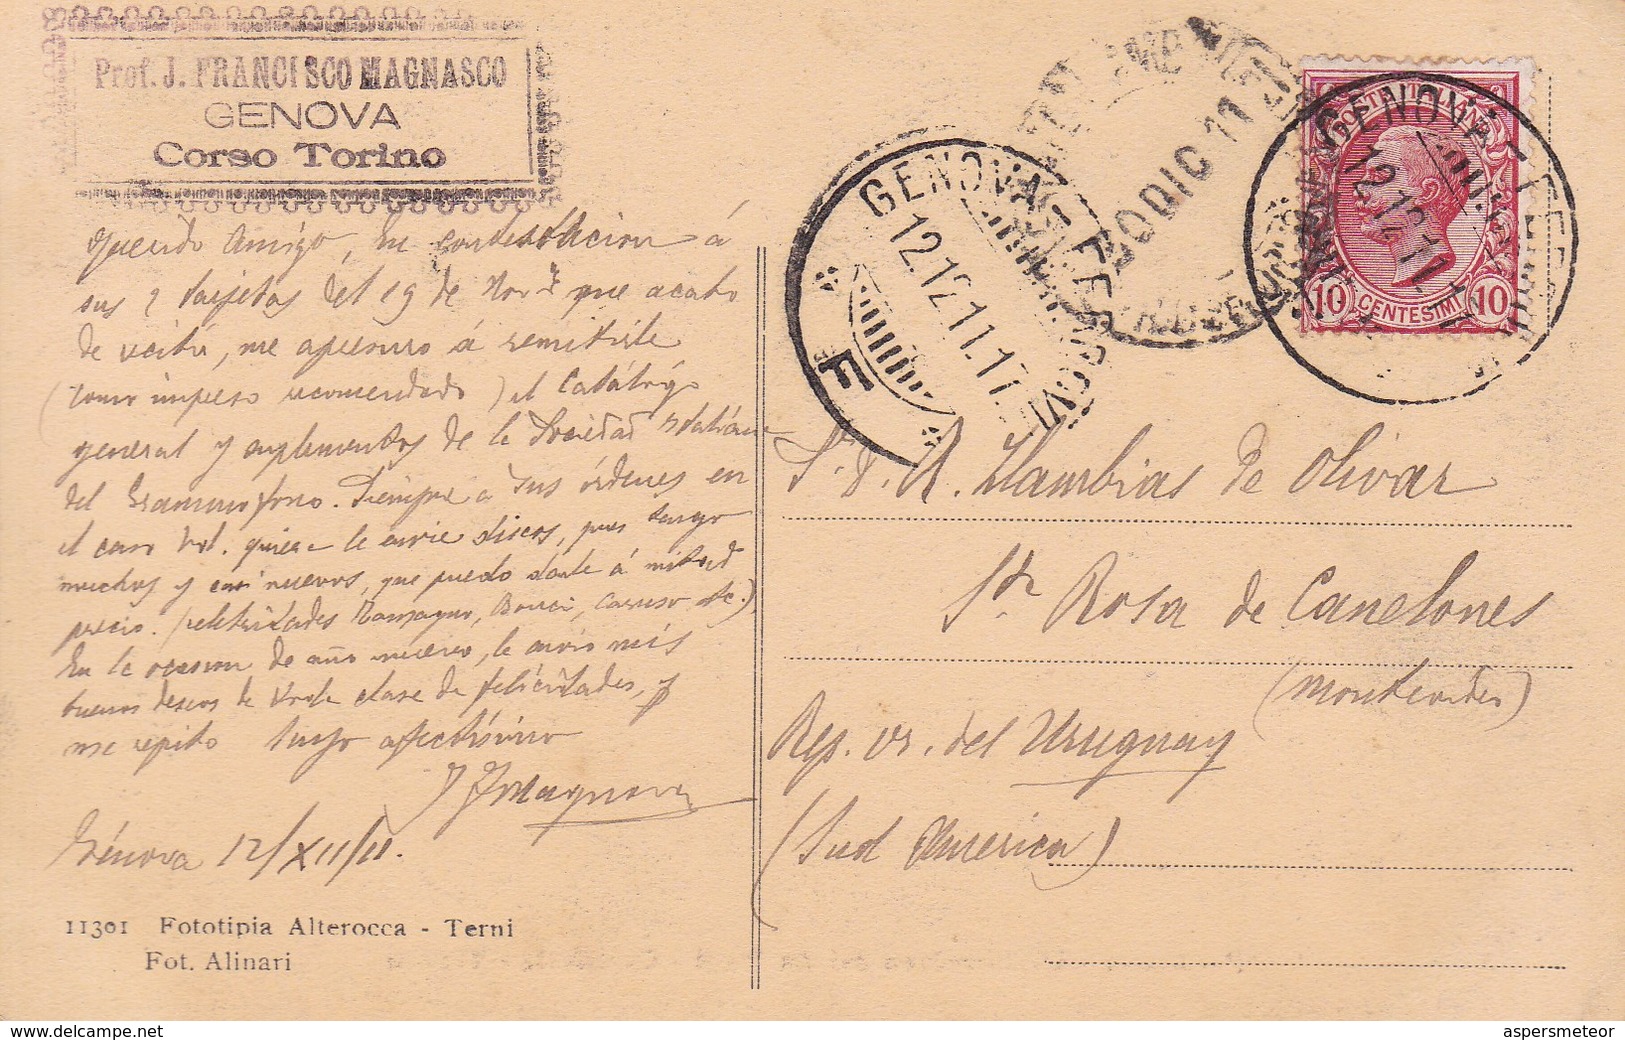 Prof. J. FRANCISCO MAGNASCO
GENOVA
Corso Torino
Querido Amigo, en contestacion á
sus 2 tarjetas del 19 de Nov.e que acabo
de recibir, me apresuro á remitirle
(como impreso recomendado) el Catálogo
general y suplementos de la Sociedad Italiana
del Grammofono. Siempre a sus órdenes en
el caso Vd. quiera le envie discos, pues tengo
muchos y casi nuevos, que puedo darle á mitad
precio. (celebridades Tamagno, Bonci, Caruso etc.)
En la ocasion de año nuevo, le envio mis
buenos deseos de toda clase de felicidades, y
me repito suyo afectísimo
J F Magnasco
Génova 12/XII/11.
11301 Fototipia Alterocca - Terni
Fot. Alinari
GENOVA FERROVIA
12.12.11.17
F
20 DIC 11
POSTE ITALIANE
10 CENTESIMI 10
GENOVA FERROVIA
12.12.11.17
Sr. D. A. Llambias de Olivar
Sta Rosa de Canelones
(Montevideo)
Rep. Or. del Uruguay
(Sud America)
aspersmeteor